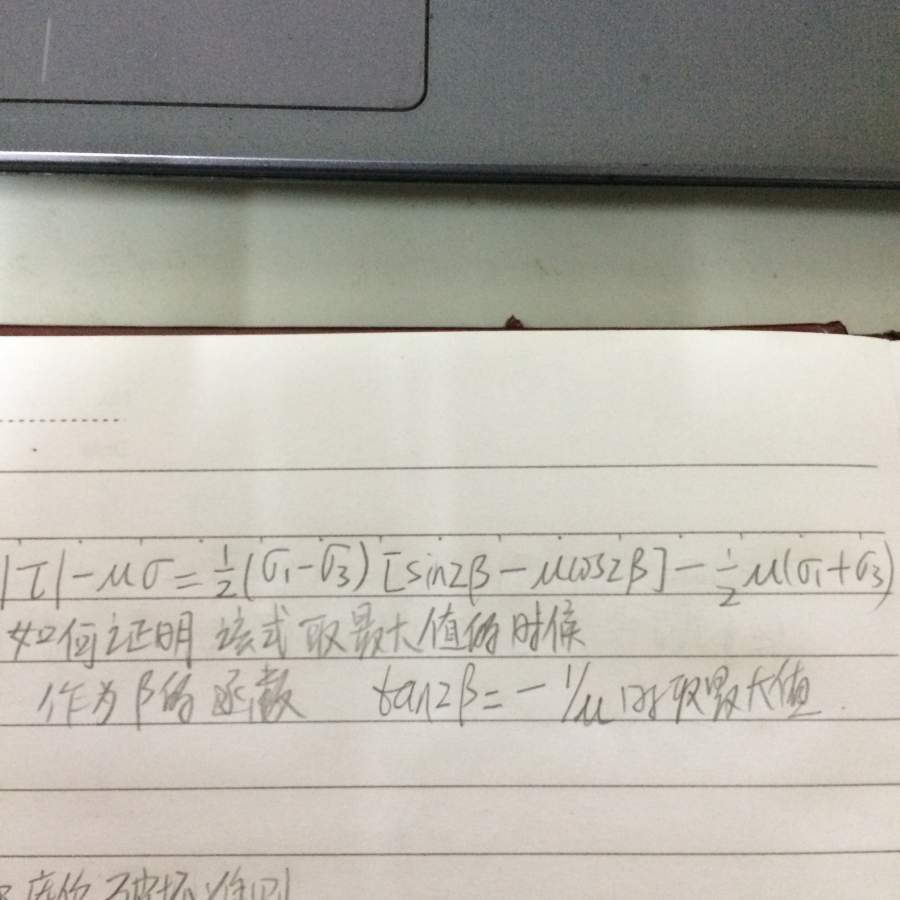 |τ|-μσ=½(σ₁-σ₃)[sin2β-μcos2β]-½μ(σ₁+σ₃)
如何证明该式取最大值的时候
作为β的函数 tan2β=-1/μ时取最大值.
破坏准则